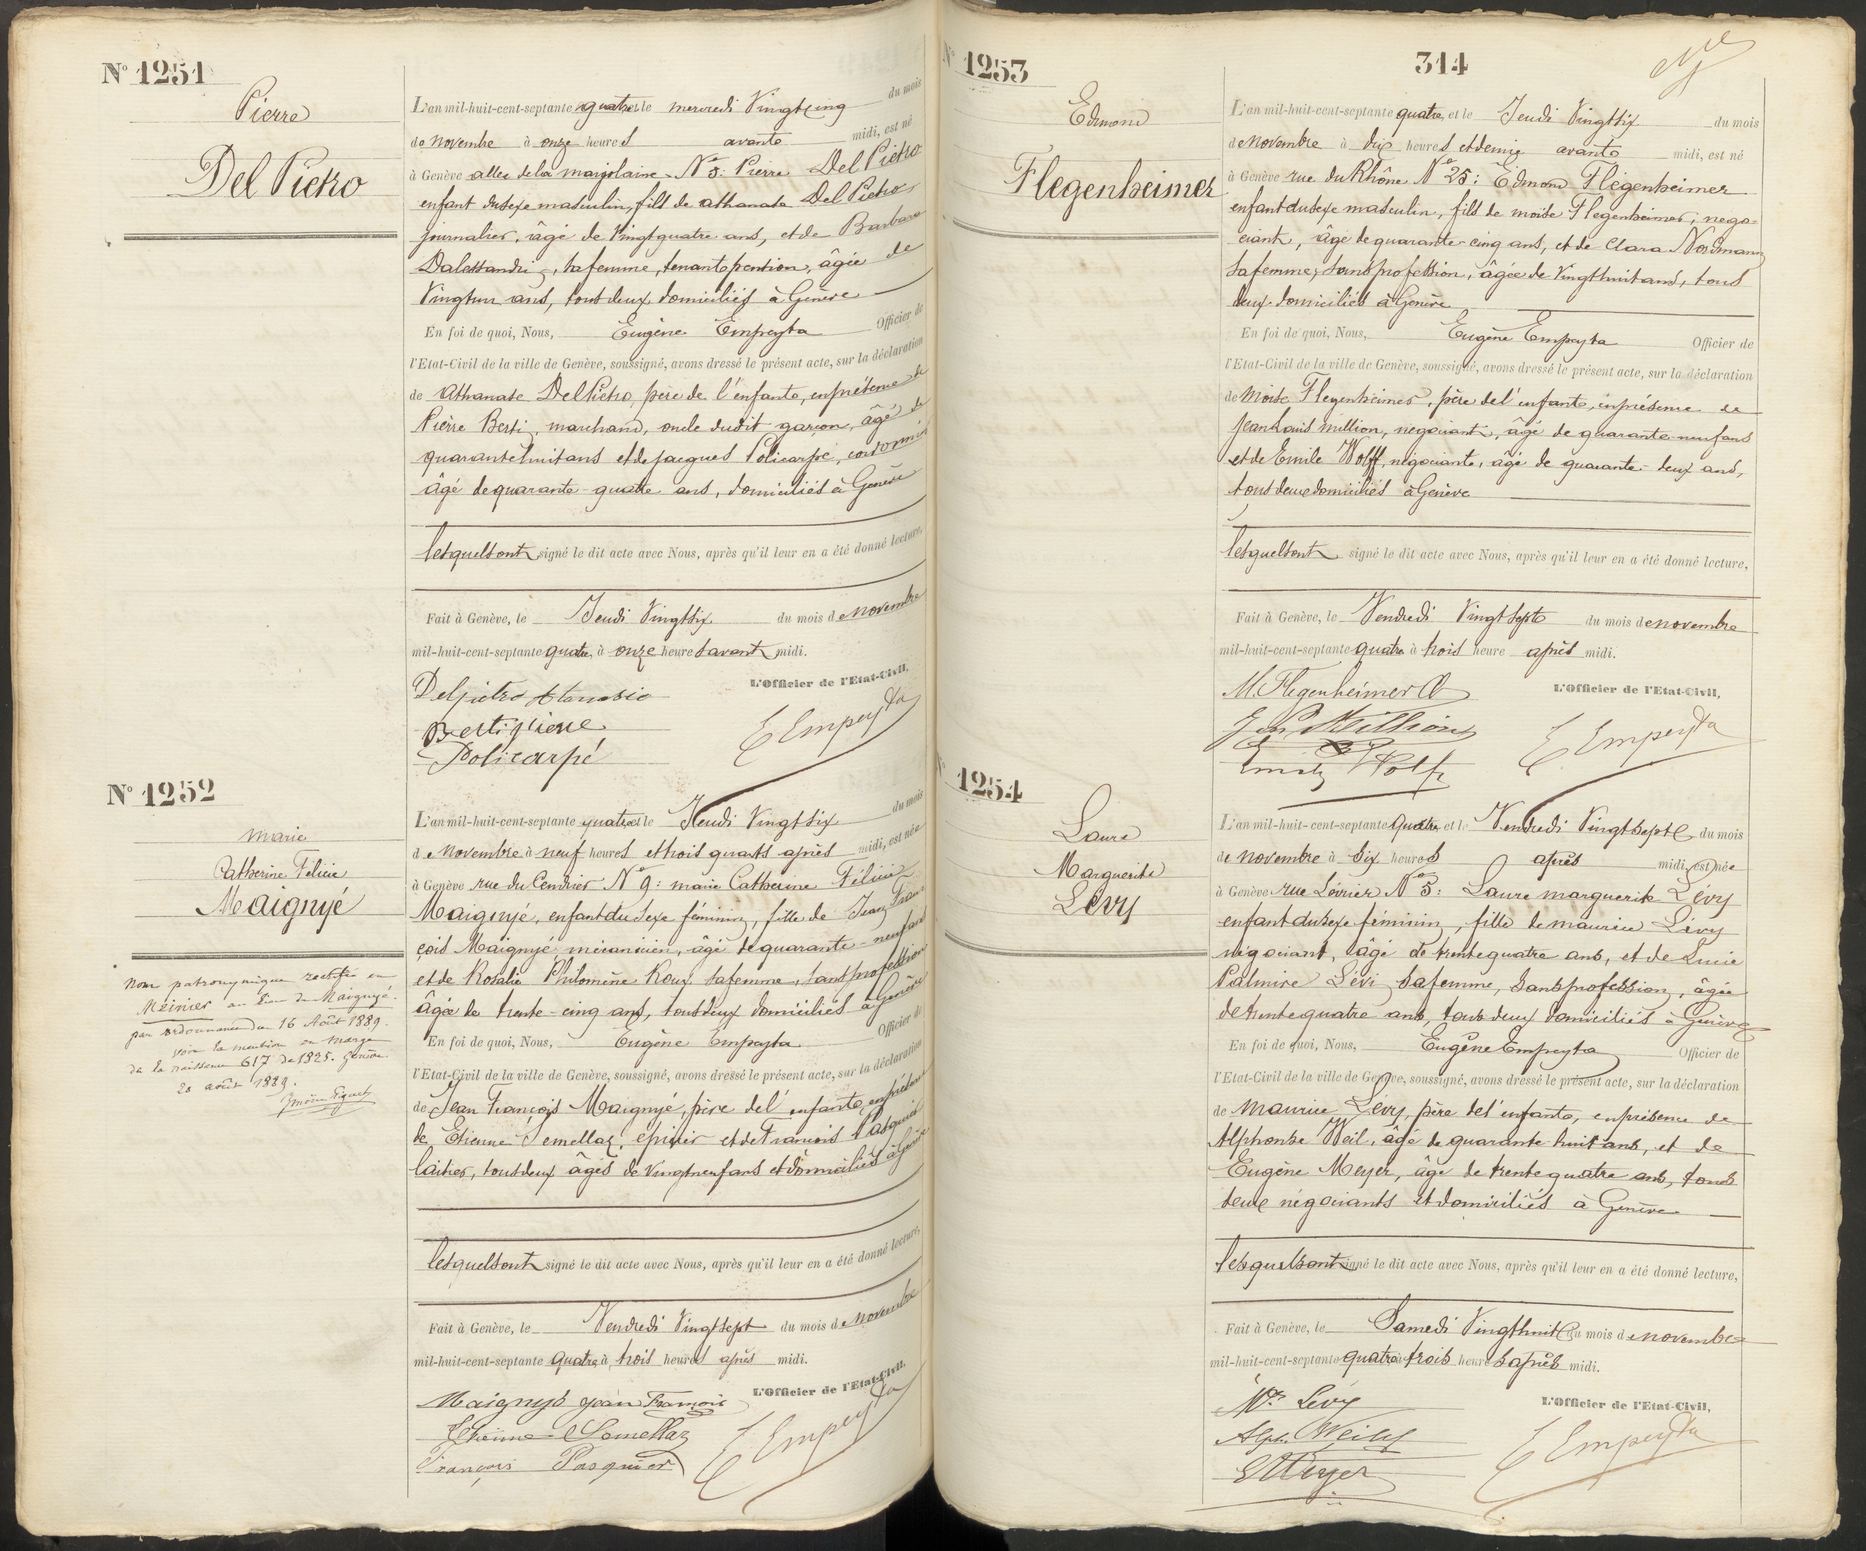 No 1251
Pierre
Del Pietro
L'an mil-huit-cent-septante quatre et le mercredi Vingt cinq du mois
de novembre à onze heures avant midi, est né
à Genève allée de la marjolaine No 5: Pierre Del Pietro
enfant du sexe masculin, fils de athanase Del Pietro
journalier, âgé de Vingt quatre ans, et de Barbara
Dalessandri, sa femme, tenant pension, âgée de
Vingt un ans, tous deux domiciliés à Genève
En foi de quoi, Nous, Eugène Empeyta Officier de
l'Etat-Civil de la ville de Genève, soussigné, avons dressé le présent acte, sur la déclaration
de Athanase Del Pietro, père de l'enfant, en présence de
Pierre Berti, marchand, oncle dudit garçon, âgé de
quarante huit ans et de Jacques Policarpe, cordonnier
âgé de quarante-quatre ans, domiciliés à Genève
lesquels ont signé le dit acte avec Nous, après qu'il leur en a été donné lecture,
Fait à Genève, le Jeudi Vingt six du mois de novembre
mil-huit-cent-septante quatre, à onze heures avant midi.
L'Officier de l'Etat-Civil,
Delpietro Atanasio
Berti pierre
Policarpé
E Empeyta
No 1252
marie
Catherine Félicie
Maignyé
Nom patronymique rectifié en
Meinier au lieu de Maignyé.
par ordonnance du 16 Août 1889.
voir la mention en marge
de la naissance 617 de 1825. Genève
20 août 1889.
L'an mil-huit-cent-septante quatre et le Jeudi Vingt six du mois
de Novembre à neuf heures et trois quarts après midi, est née
à Genève rue du Cendrier No 9: marie Catherine Félicie
Maignyé, enfant du sexe féminin, fille de Jean Fran
çois Maignyé mécanicien, âgé de quarante-neuf ans
et de Rosalie Philomène Roux, sa femme, sans profession
âgée de trente-cinq ans, tous deux domiciliés à Genève
En foi de quoi, Nous, Eugène Empeyta Officier de
l'Etat-Civil de la ville de Genève, soussigné, avons dressé le présent acte, sur la déclaration
de Jean François Maignyé, père de l'enfant, en présence
de Etienne Semellaz, épicier et de François Pasquier
laitier, tous deux âgés de Vingt neuf ans et domiciliés à Genève
lesquels ont signé le dit acte avec Nous, après qu'il leur en a été donné lecture,
Fait à Genève, le Vendredi Vingt sept du mois de Novembre
mil-huit-cent-septante quatre à trois heures après midi.
L'Officier de l'Etat-Civil.
Maignyé jean François
Etienne Semellaz
François Pasquier
E Empeyta
314
No 1253
Edmond
Flegenheimer
L'an mil-huit-cent-septante quatre, et le Jeudi Vingt six du mois
de novembre à dix heures et demie avant midi, est né
à Genève rue du Rhône No 25: Edmond Flegenheimer
enfant du sexe masculin, fils de moïse Flegenheimer, négo-
ciant, âgé de quarante-cinq ans, et de Clara Nordmann
sa femme, sans profession, âgée de Vingt huit ans, tous
deux domiciliés à Genève
En foi de quoi, Nous, Eugène Empeyta Officier de
l'Etat-Civil de la ville de Genève, soussigné, avons dressé le présent acte, sur la déclaration
de Moïse Flegenheimer, père de l'enfant, en présence de
Jean Louis Million, négociant, âgé de quarante-neuf ans
et de Emile Wolff, négociant, âgé de quarante-deux ans,
tous deux domiciliés à Genève
lesquels ont signé le dit acte avec Nous, après qu'il leur en a été donné lecture,
Fait à Genève, le Vendredi Vingt sept du mois de novembre
mil-huit-cent-septante quatre à trois heure après midi.
L'Officier de l'Etat-Civil,
M. Flegenheimer
Million
E Empeyta
No 1254
Laure
Marguerite
Lévy
L'an mil-huit-cent-septante quatre, et le Vendredi Vingt sept du mois
de novembre à six heures après midi, est née
à Genève rue Lévrier No 5: Laure marguerite Lévy
enfant du sexe féminin, fille de maurice Lévy
négociant, âgé de trente quatre ans, et de Lucie
Palmire Lévi, sa femme, sans profession, âgée
de trente quatre ans, tous deux domiciliés à Genève
En foi de quoi, Nous, Eugène Empeyta Officier de
l'Etat-Civil de la ville de Genève, soussigné, avons dressé le présent acte, sur la déclaration
de Maurice Lévy, père de l'enfant, en présence de
Alphonse Weil, âgé de quarante huit ans, et de
Eugène Meyer, âgé de trente quatre ans, tous
deux négociants et domiciliés à Genève
lesquels ont signé le dit acte avec Nous, après qu'il leur en a été donné lecture,
Fait à Genève, le Samedi Vingt huit du mois de novembre
mil-huit-cent-septante quatre à trois heures après midi.
L'Officier de l'Etat-Civil,
Mce Lévy
Alph. Weill
E Meyer
E Empeyta